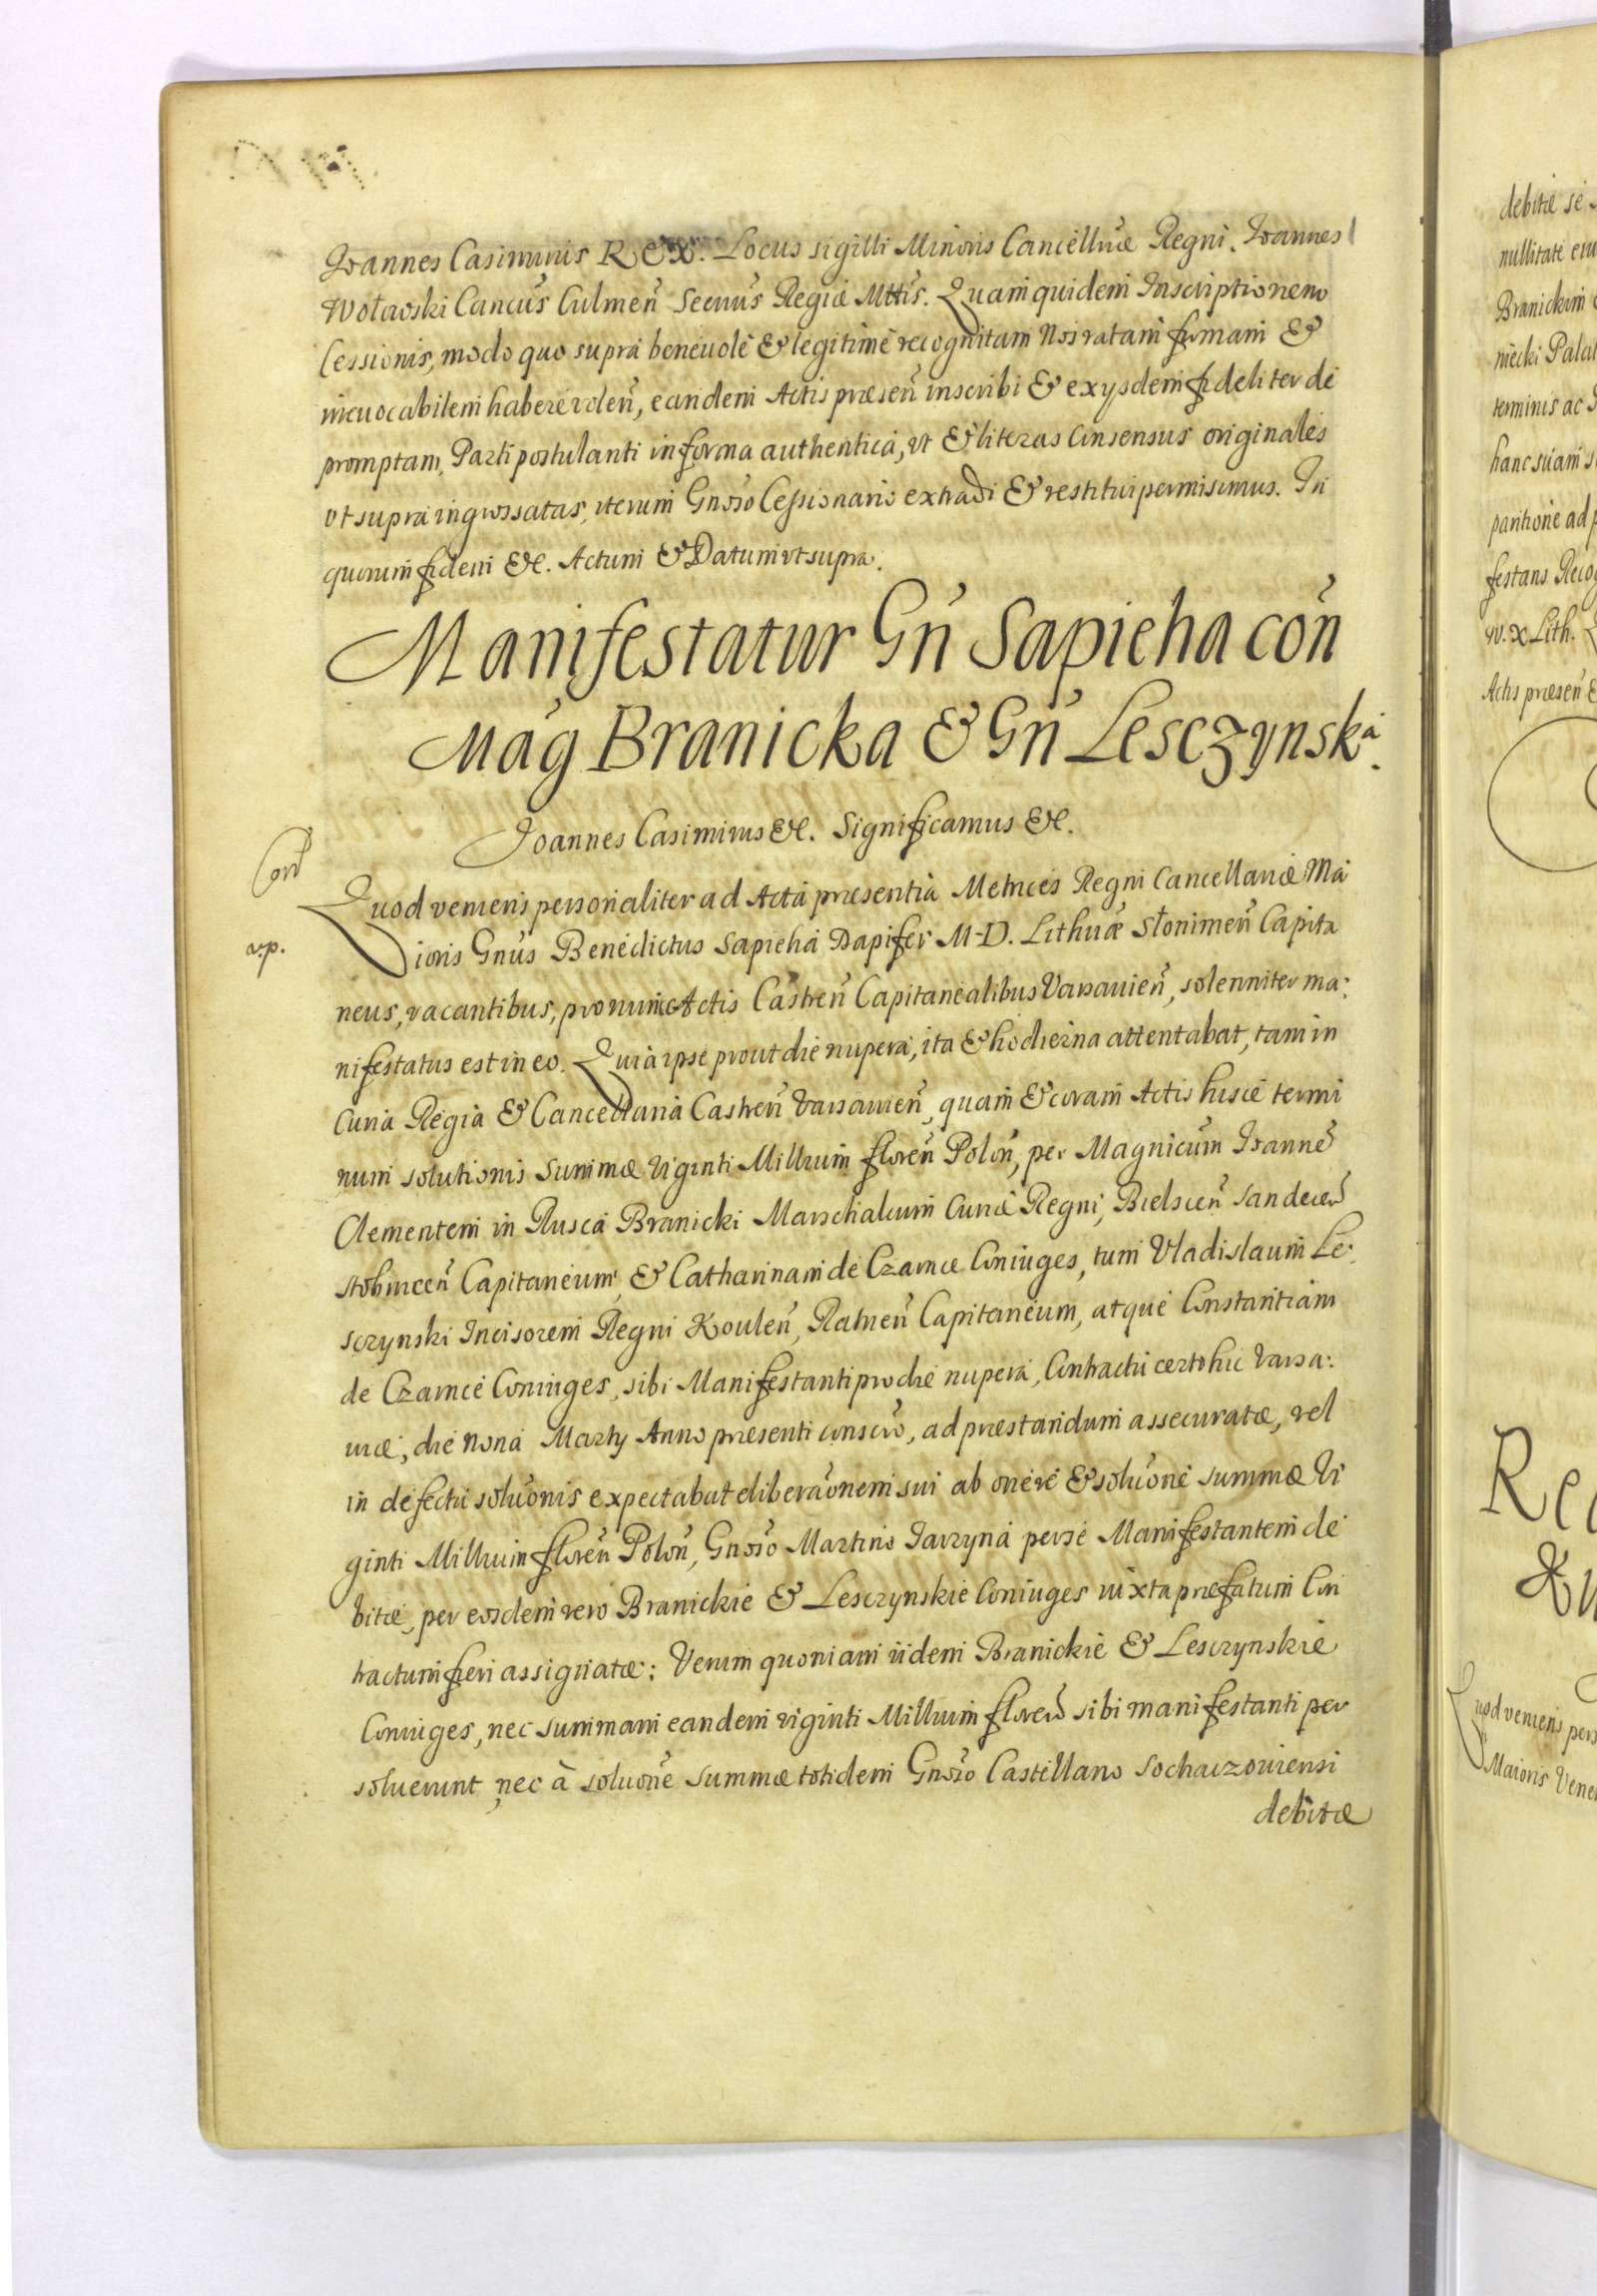 Joannes Casimirus REX. Locus sigilli Minoris Cancellriæ Regni. Joannes
Wołowski Cancus Culmeñ Secrius Regiæ Mttis. Quam quidem Inscriptionem
Cessionis, modo quo supra beneuolè & legitimè recognitam Nos ratam firmam &
irreuocabilem habere volen, eandem Actis præsen inscribi & ex ysdem fideliter de
promptam, Parti postulanti in forma authentica, vt & literas Consensus originales
vt supra ingrossatas, iterum Gnoso Cessionario extradi & restitui permisimus. In
quorum fidem &c. Actum & Datum vt supra.
Manifestatur Gñ Sapieha coñ
Mag Branicka & Gñ Lesczynska.
Joannes Casimirus &c. Significamus &c.
Quod veniens personaliter ad Acta præsentia Metrices Regni Cancellariæ Ma
ioris Gnus Benedictus Sapieha Dapifer M-D. Lithuæ Słonimeñ Capita
neus, vacantibus, pro nunc Actis Castreñ Capitanealibus Varsauieñ, solenniter ma:
nifestatus est in eo. Quia ipse prout die nupera, ita & hodierna attentabat, tam in
Curia Regia & Cancellaria Castreñ Varsauieñ, quam & coram Actis hisce termi
num solutionis Summæ viginti Millium floreñ Poloñ, per Magnicum Joannē
Clementem in Rusca Branicki Marschalcum Curiæ Regni, Bielsceñ Sandeceñ
Stobniceñ Capitaneum, & Catharinam de Czarnca Coniuges, tum Vladislaum Le:
sczynski Incisorem Regni Kouleñ, Ratneñ Capitaneum, atque Constantiam
de Czarnca Coniuges, sibi Manifestanti pro die nupera, Contractu certo hic Varsa:
uiæ, die nona Marty Anno præsenti conscro, ad præstandum assecuratæ, vel
in defectu soluonis expectabat eliberaonem sui ab onere & soluone summæ Vi
ginti Millium floreñ Poloñ, Gnoso Martino Jarzyna per se Manifestantem de
bitæ, per eosdem vero Branickie & Lesczynskie Coniuges iuxta præfatum Con
tractum fieri assignatæ: Verum quoniam iidem Branickie & Lesczynskie
Coniuges, nec summam eandem viginti Millium floreñ sibi manifestanti per
soluerunt, nec à soluone Summæ totidem Gnoso Castellano Sochaczouiensi
debitæ
v.p.